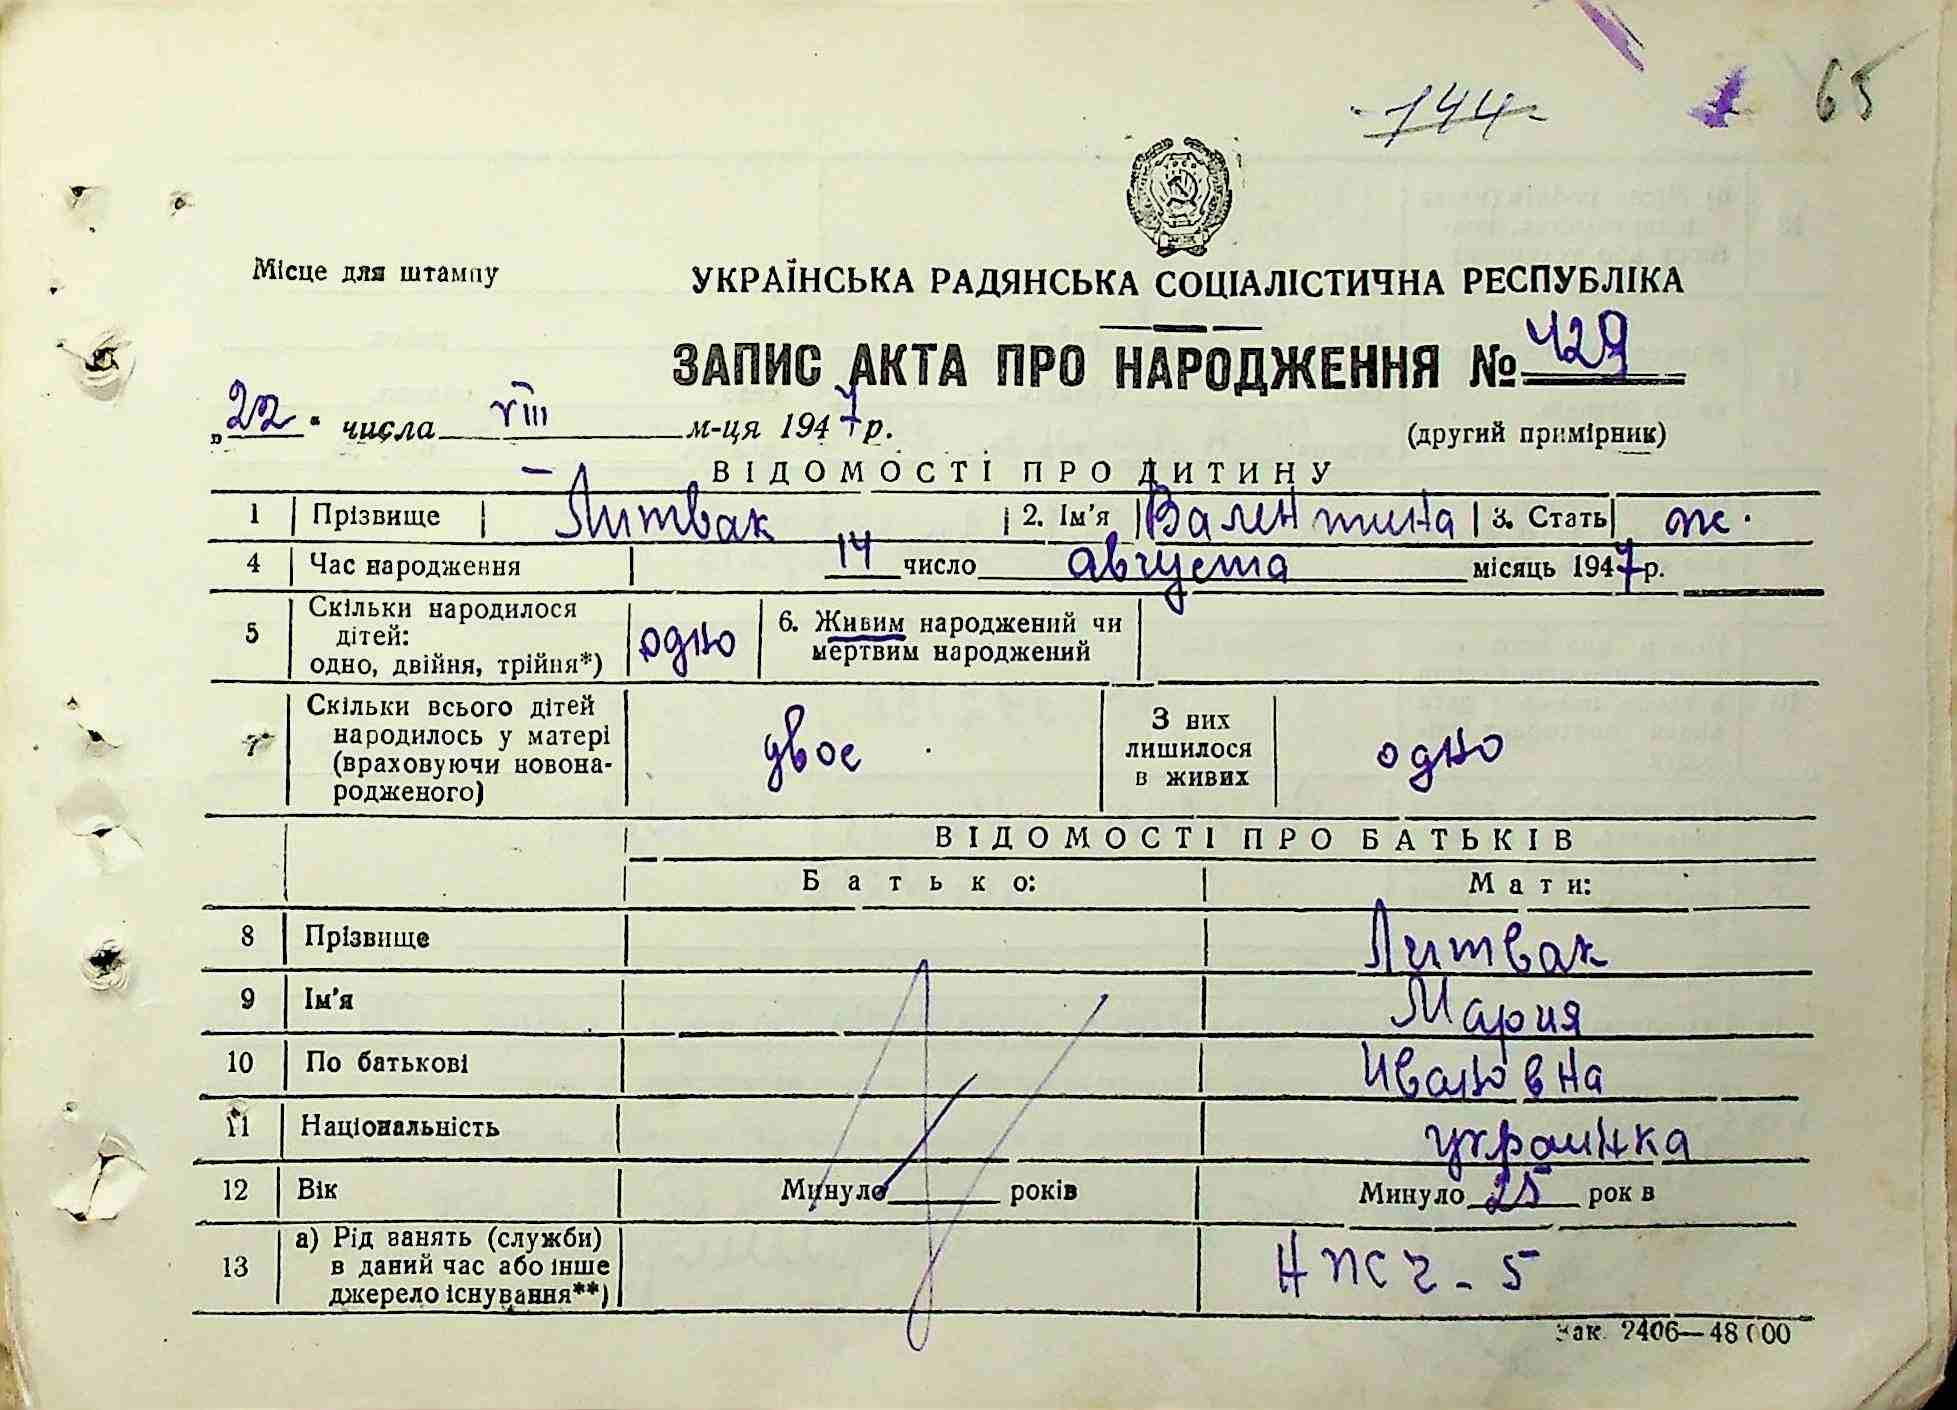 144
65
Місце для штампу
УКРАЇНСЬКА РАДЯНСЬКА СОЦІАЛІСТИЧНА РЕСПУБЛІКА
ЗАПИС АКТА ПРО НАРОДЖЕННЯ № 429
„22“ числа VIII м-ця 1947 р.
(другий примірник)
ВІДОМОСТІ ПРО ДИТИНУ
1 Прізвище Литвак 2. Ім'я Валентина 3. Стать ж.
4 Час народження 14 число августа місяць 1947 р.
5 Скільки народилося дітей: одно, двійня, трійня*) одно 6. Живим народжений чи мертвим народжений
7 Скільки всього дітей народилось у матері (враховуючи новонародженого) двое З них лишилося в живих одно
ВІДОМОСТІ ПРО БАТЬКІВ
Батько: Мати:
8 Прізвище Литвак
9 Ім'я Мария
10 По батькові Ивановна
11 Національність украинка
12 Вік Минуло років Минуло 25 рок в
13 а) Рід занять (служби) в даний час або інше джерело існування**)
Зак. 2406—48 000